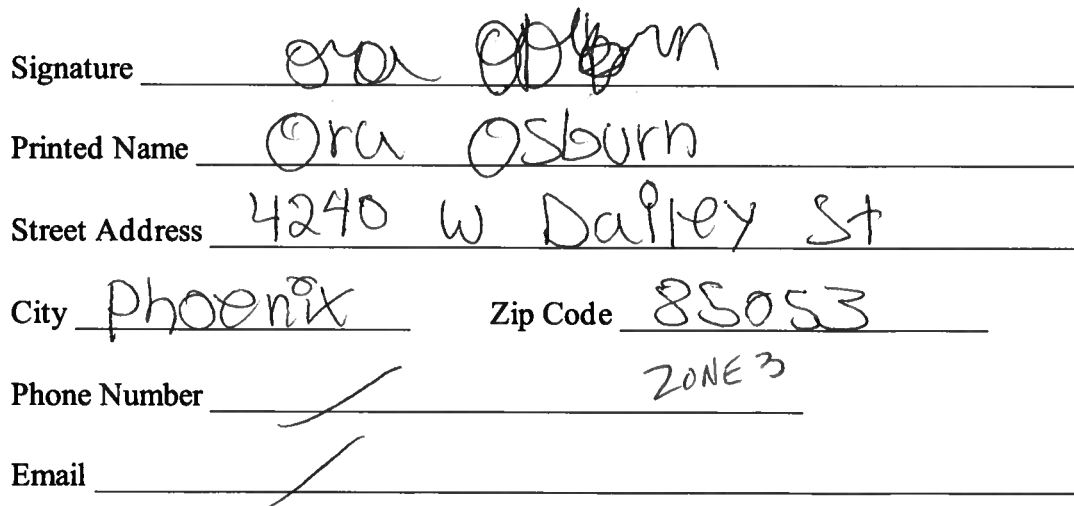 Signature ora Osburn
Printed Name Ora Osburn
Street Address 4240 W Dailey St
City Phoenix Zip Code 85053
ZONE 3
Phone Number
Email